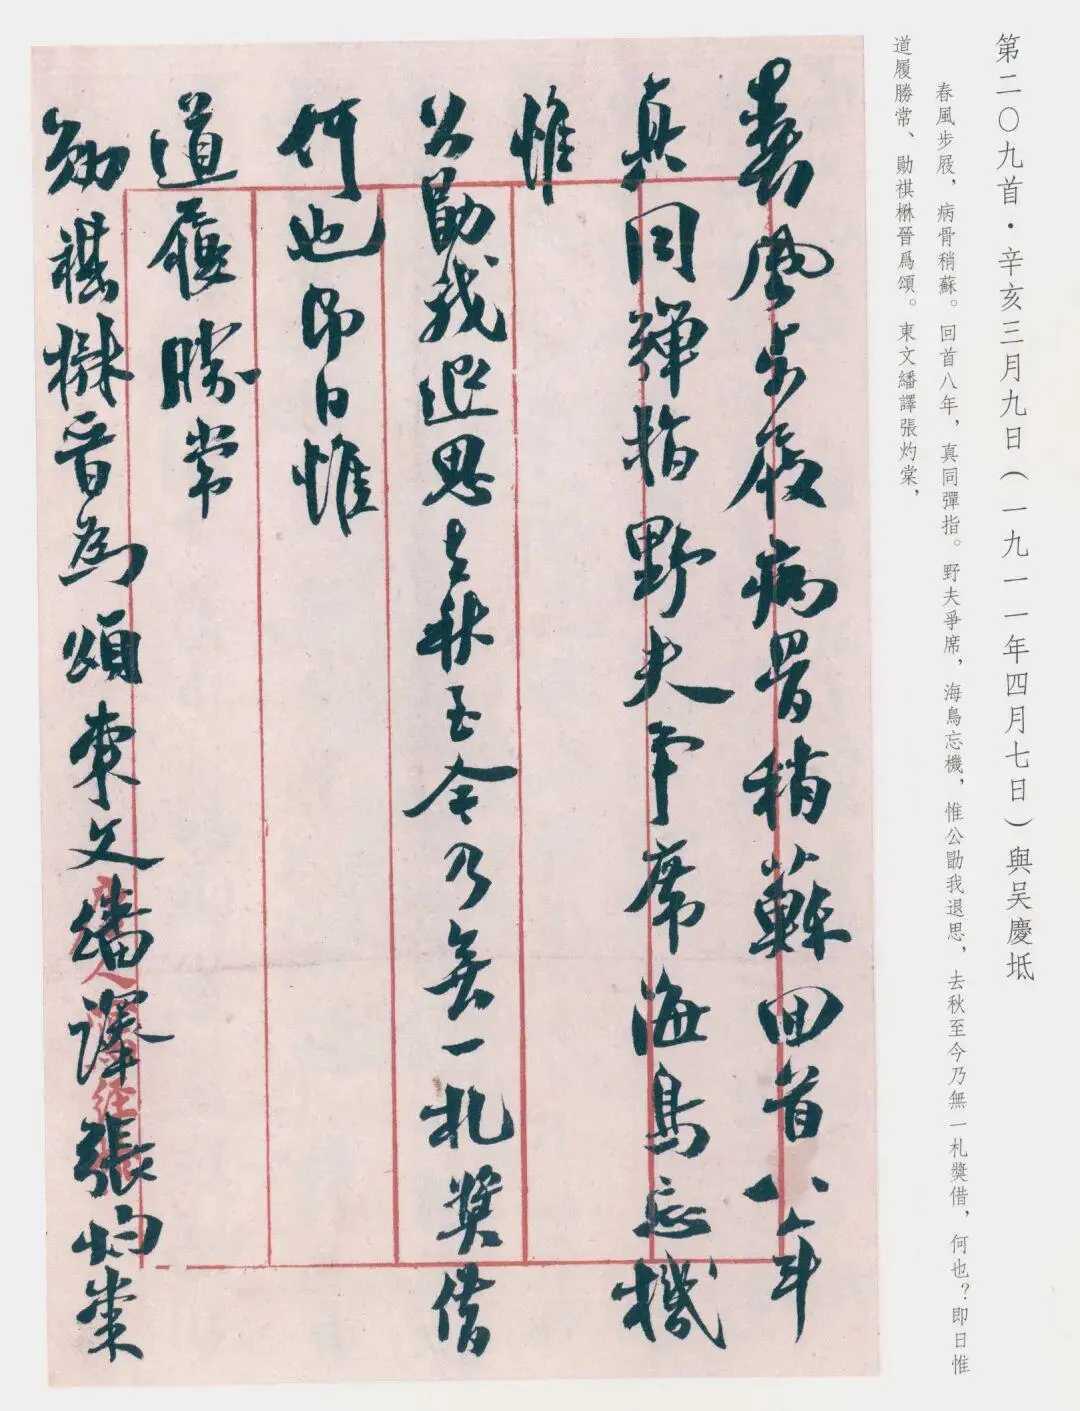 第二〇九首·辛亥三月九日(一九一一年四月七日)與吴慶坻
春風步屐，病骨稍蘇。回首八年，真同彈指。野夫爭席，海鳥忘機，惟公勖我退思，去秋至今乃無一札獎借，何也？即日惟
道履勝常、勛祺楙晉爲頌。東文繙譯張灼棠，
春風步屐病骨稍蘇回首八年
真同彈指野夫爭席海鳥忘機
惟
公勖我退思去秋至今乃無一札獎借
何也即日惟
道履勝常
勛祺楙晉為頌東文繙譯張灼棠